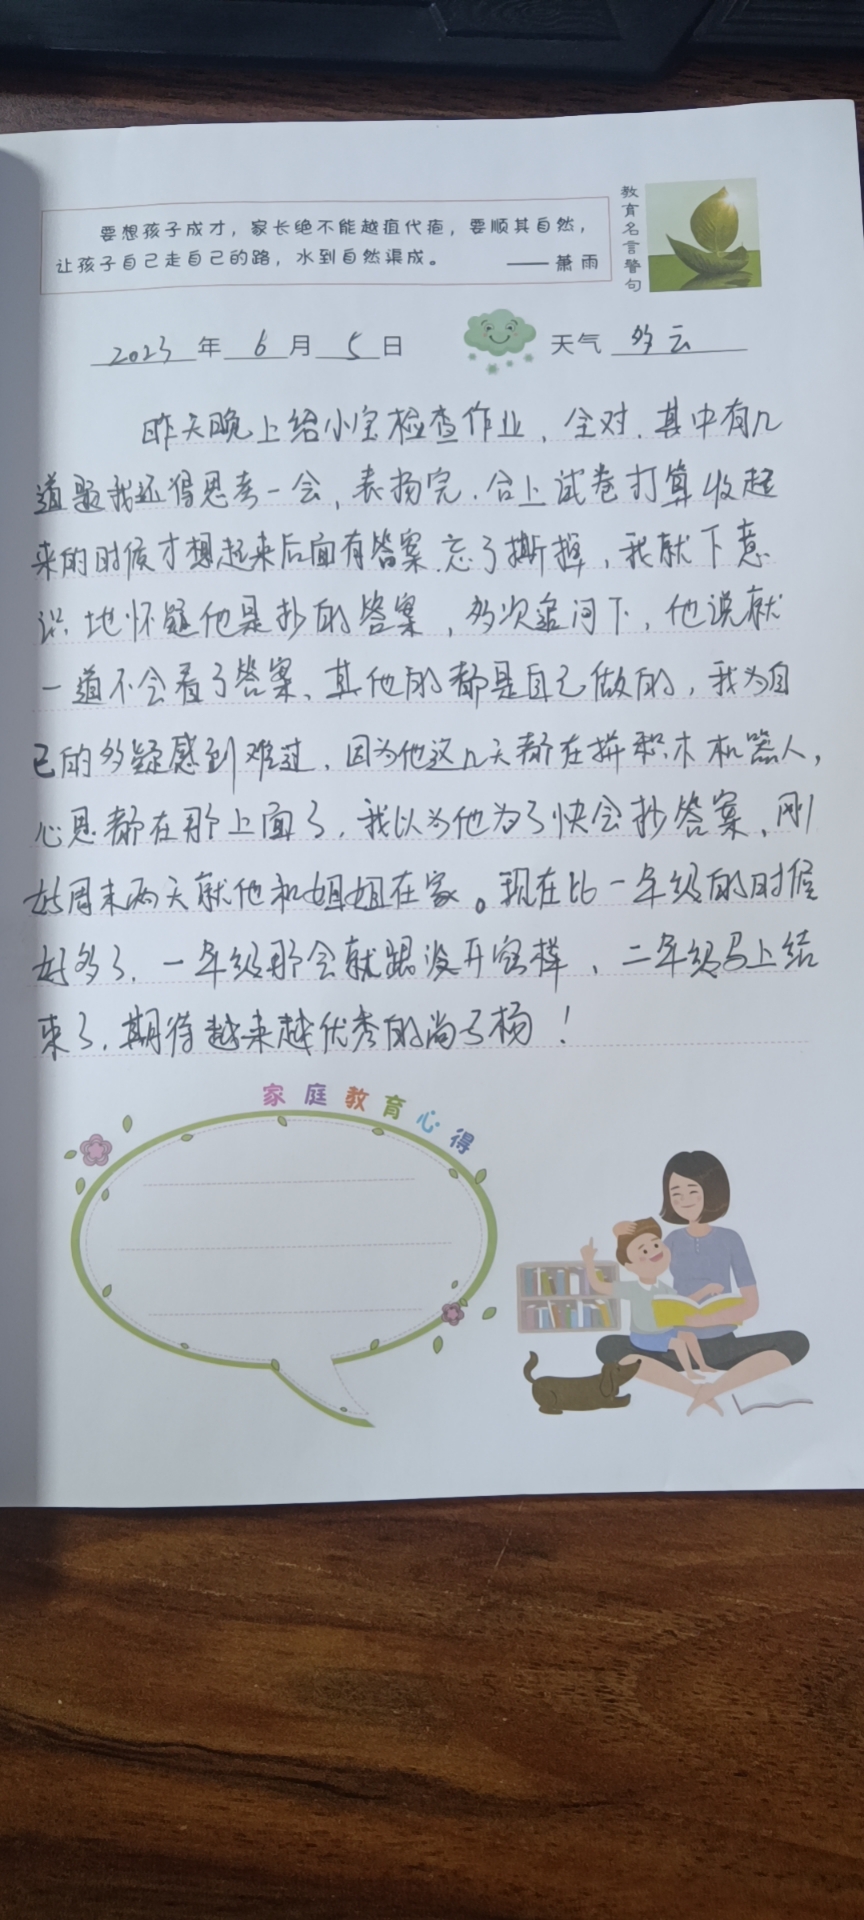 要想孩子成才，家长绝不能越殖代疱，要顺其自然，
让孩子自己走自己的路，水到自然渠成。 —— 萧雨
教育名言警句
2023年6月5日 天气 多云
昨天晚上给小宝检查作业，全对，其中有几
道题我还得思考一会，表扬完，合上试卷打算收起
来的时候才想起来后面有答案，忘了撕掉，我就下意
识地怀疑他是抄的答案，多次追问下，他说就
一道不会看了答案、其他的都是自己做的，我为自
己的多疑感到难过，因为他这几天都在拼积木机器人，
心思都在那上面了，我以为他为了快会抄答案，刚
好周末两天就他和姐姐在家。现在比一年级的时候
好多了，一年级那会就跟没开窍样、二年级马上结
束了，期待越来越优秀的尚子杨！
家庭教育心得